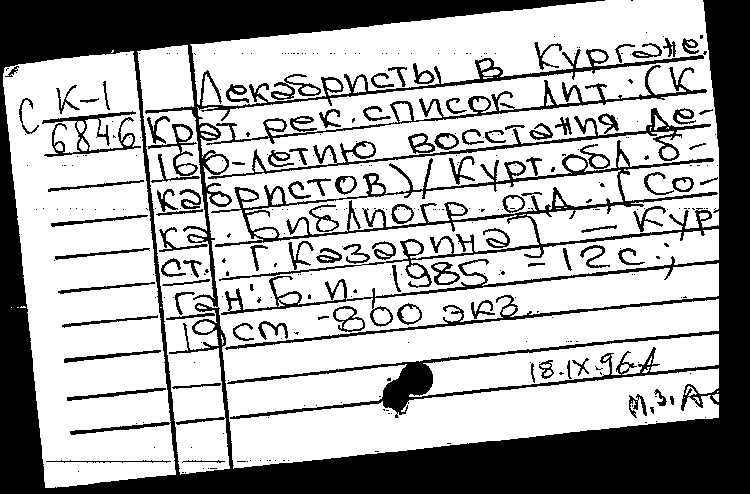 Декабристы в Кургане:
С К-1
6846 Крат. рек. список лит.: (К
160-летию восстания де-
кабристов) / Кург. обл. б-
ка. Библиогр. отд.; [Со-
ст.: Г. Казарина] – Кур
ган: Б. и., 1985. – 12 с.;
19 см. – 800 экз.
18.IX.96
М.З.